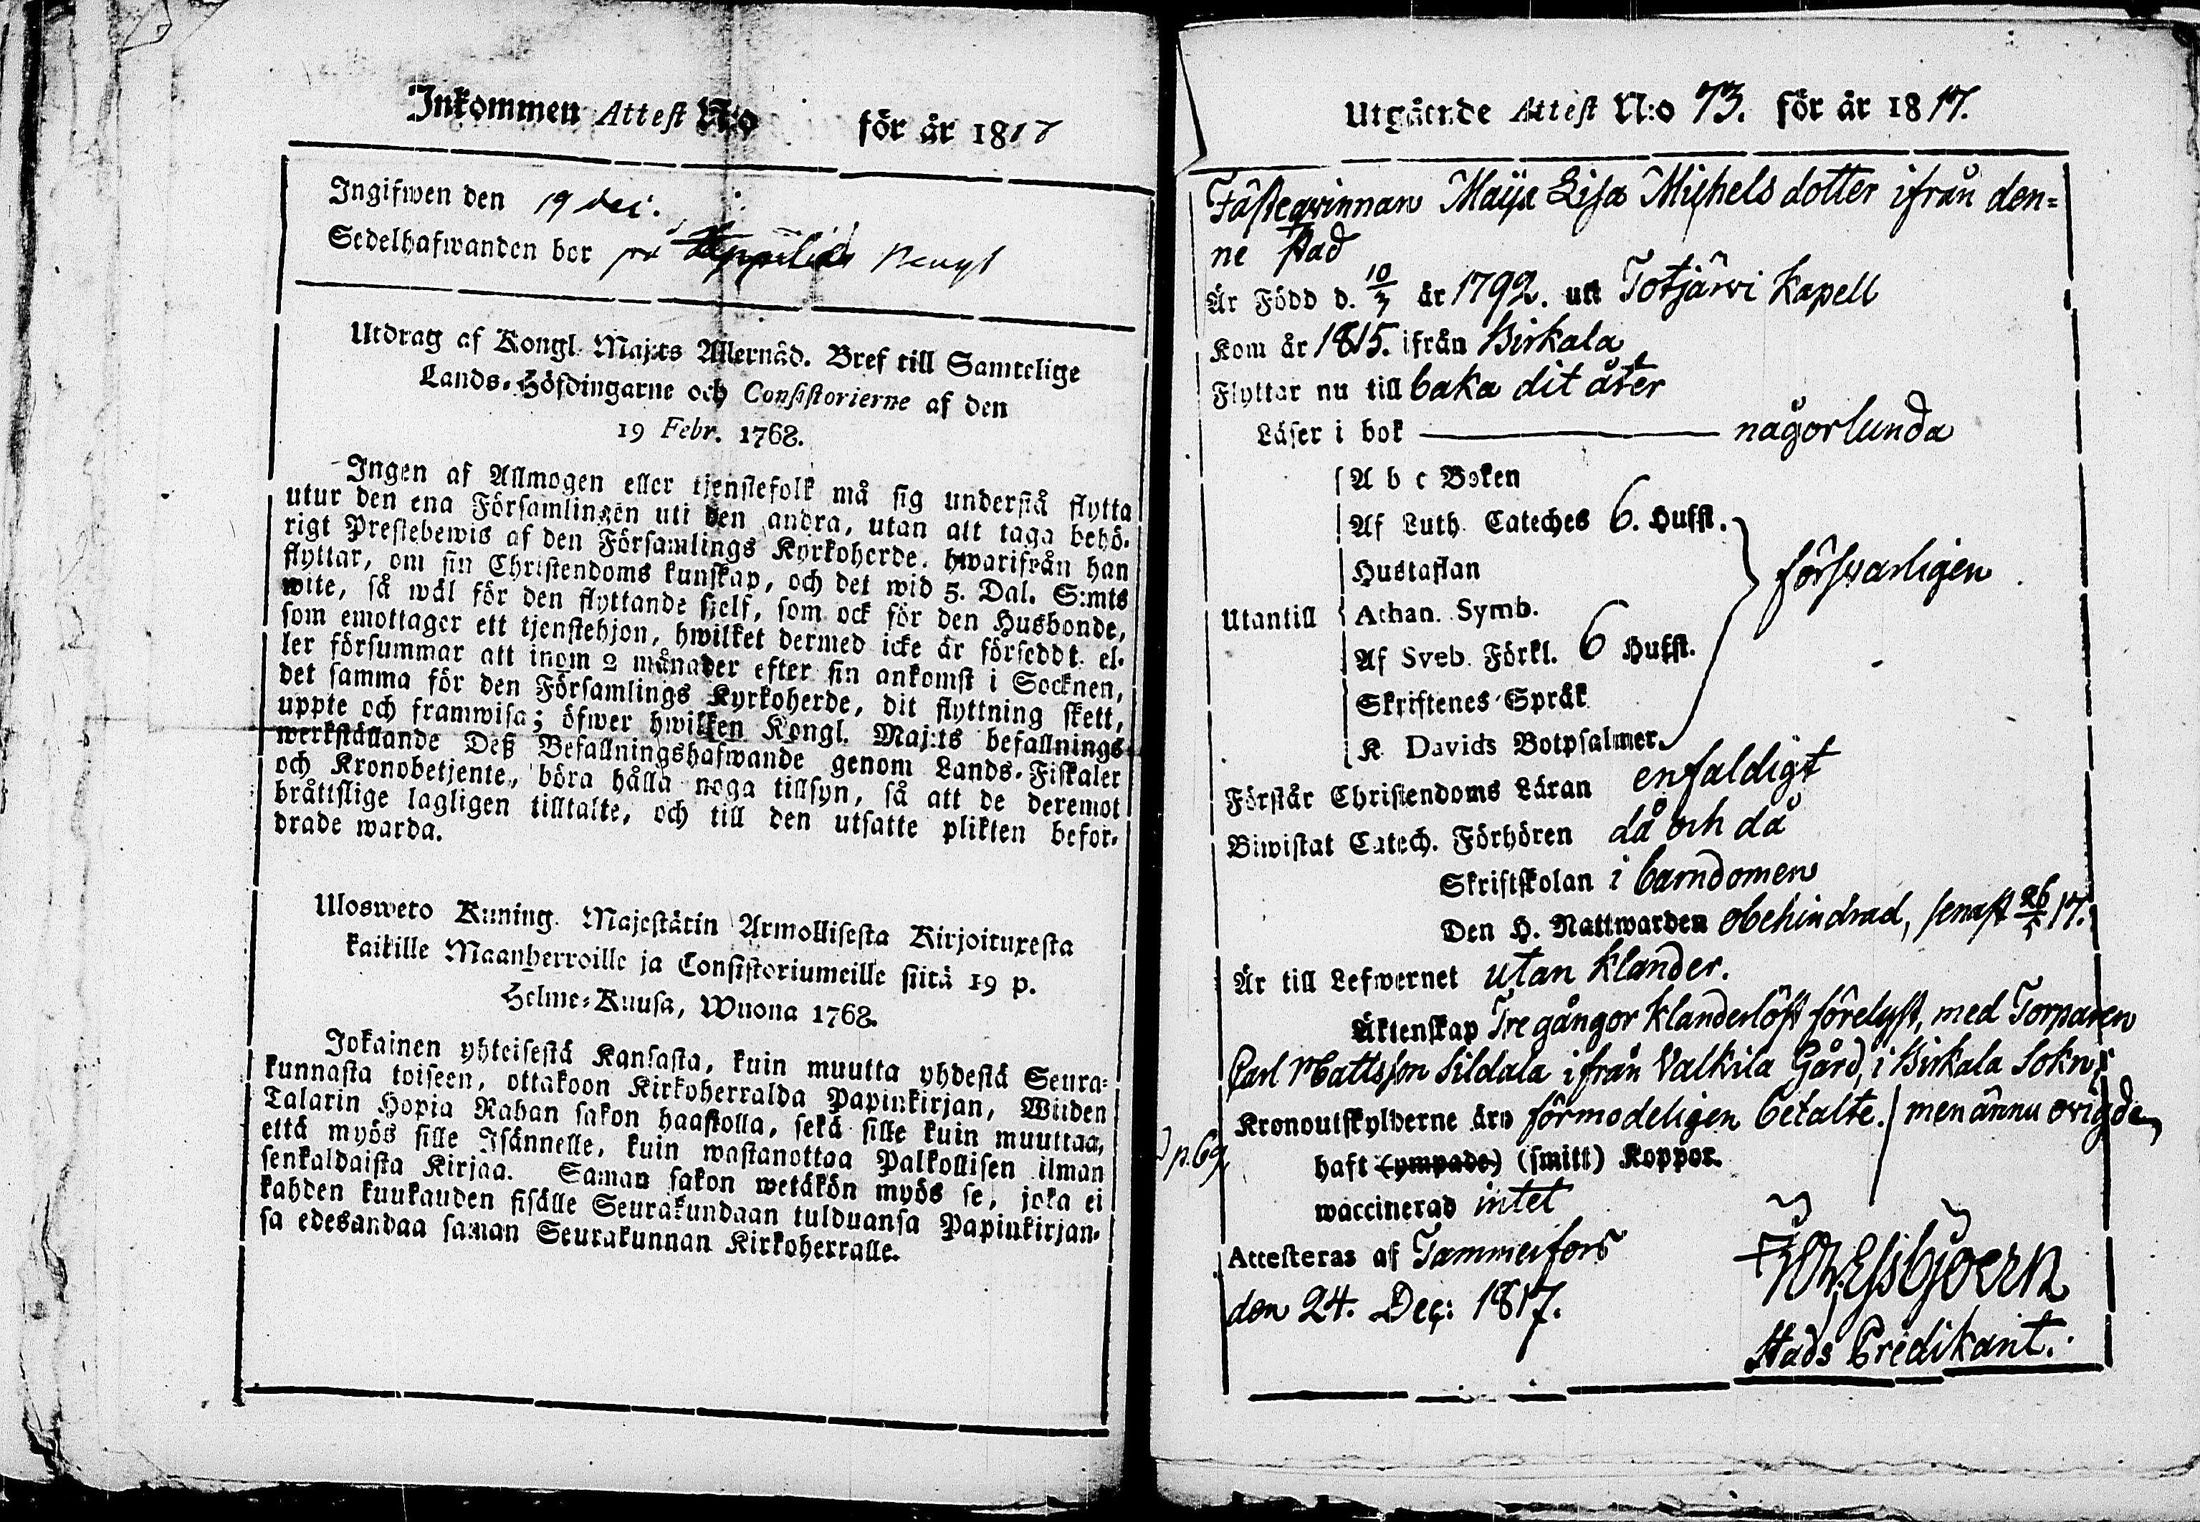 Inkommen Attest N:o för år 1817
Ingifwen den 19 dec.
Sedelhafwanden bor på
Utdrag af Kongl. Maj:ts Allernåd. Bref till Samtelige
Lands-Höfdingarne och Consistorierne af den
19 Febr. 1768.
Ingen af Allmogen eller tjenstefolk må sig understå flytta
utur den ena Församlingen uti den andra, utan att taga behö-
rigt Prestebewis af den Församlings Kyrkoherde, hwarifrån han
flyttar, om sin Christendoms kunskap, och det wid 5. Dal. S:mts
wite, så wäl för den flyttande sjelf, som ock för den Husbonde,
som emottager ett tjenstehjon, hwilket dermed icke är försedt, el-
ler försummar att inom 2 månader efter sin ankomst i Socknen,
det samma för den Församlings Kyrkoherde, dit flyttning skett,
uppte och framwisa; öfwer hwilken Kongl. Maj:ts befallnings
werkställande Deß Befallningshafwande genom Lands-Fiskaler
och Kronobetjente, böra hålla noga tillsyn, så att de deremot
bråttslige lagligen tilltalte, och till den utsatte plikten befor-
drade warda.
Ulosweto Kuning. Majestätin Armollisesta Kirjoituxesta
kaikille Maanherroille ja Consistoriumeille siitä 19 p.
Helme-Kuusa, Wuona 1768.
Jokainen yhteisestä Kansasta, kuin muutta yhdestä Seura-
kunnasta toiseen, ottakoon Kirkoherralda Papinkirjan, Wiiden
Talarin Hopia Rahan sakon haastolla, sekä sille kuin muuttaa,
että myös sille Isännelle, kuin wastanottaa Palkollisen ilman
senkaldaista Kirjaa. Saman sakon wetäkön myös se, joka ei
kahden kuukauden sisälle Seurakundaan tulduansa Papinkirjan-
sa edesandaa saman Seurakunnan Kirkoherralle.
Utgående Attest N:o 73. för år 1817.
Fästeqvinnan Maija Lisa Michelsdotter ifrån den-
ne stad
Är Född d. 10/3 år 1792. uti Totjärvi Kapell
Kom år 1815. ifrån Birkala
Flyttar nu till baka dit åter
Läser i bok någorlunda
A b c Boken
Af Luth. Cateches 6. Hufst.
Hustaflan
försvarligen
Utantill
Athan. Symb.
Af Sveb. Förkl. 6 Hufst.
Skriftenes Språk
K. Davids Botpsalmer.
Förstår Christendoms Läran enfaldigt
Biwistat Catech. Förhören då och då
Skriftskolan i barndomen
Den H. Nattwarden obehindrad, senast 26/5 17.
Är till Lefwernet utan klander.
Äktenskap Tre gångor klanderlöst förelyst, med Torparen
Carl Mattsson Sildala ifrån Valkila Gård, i Birkala Sokn,
Kronoutskylderne äro förmodeligen betalte. men ännu ovigde
p. 69.
haft (ympade) (smitt) Koppor.
waccinerad intet
Attesteras af Tammerfors
den 24. Dec: 1817.
Essbjoern
Stads Predikant.